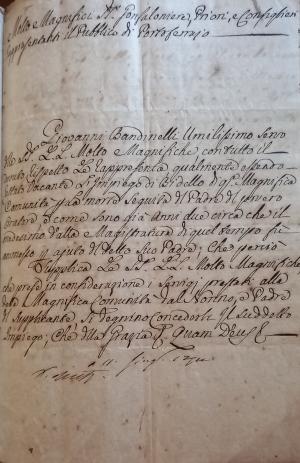 Molto Magnifici SS.ri Gonfaloniere, Priori, e Consiglieri
rappresentanti il Pubblico di Portoferrajo
Giovanni Bandinelli Umilissimo Servo
delle SS. LL. Molto e Magnifiche con tutto il
rispetto Le rappresenta qualmente essendo
Vacante L'Impiego di Bidello di q.sta Magnifica
Comunità p la morte Seguita del Padre di povero
Oratore, e come sono già Anni due circa che il
medesimo dalla Magistratura di quel tempo fù
ammesso p ajuto di detto Suo Padre; Che perciò
Supplica Le SS. LL. Molto Magnifiche
che prese in considerazione i Servizj prestati alla
detta Magnifica Comunità dal Nonno, e Padre
del Supplicante Si degnino Concederli Il Suddetto
Impiego; Che della Grazia Quam Deus